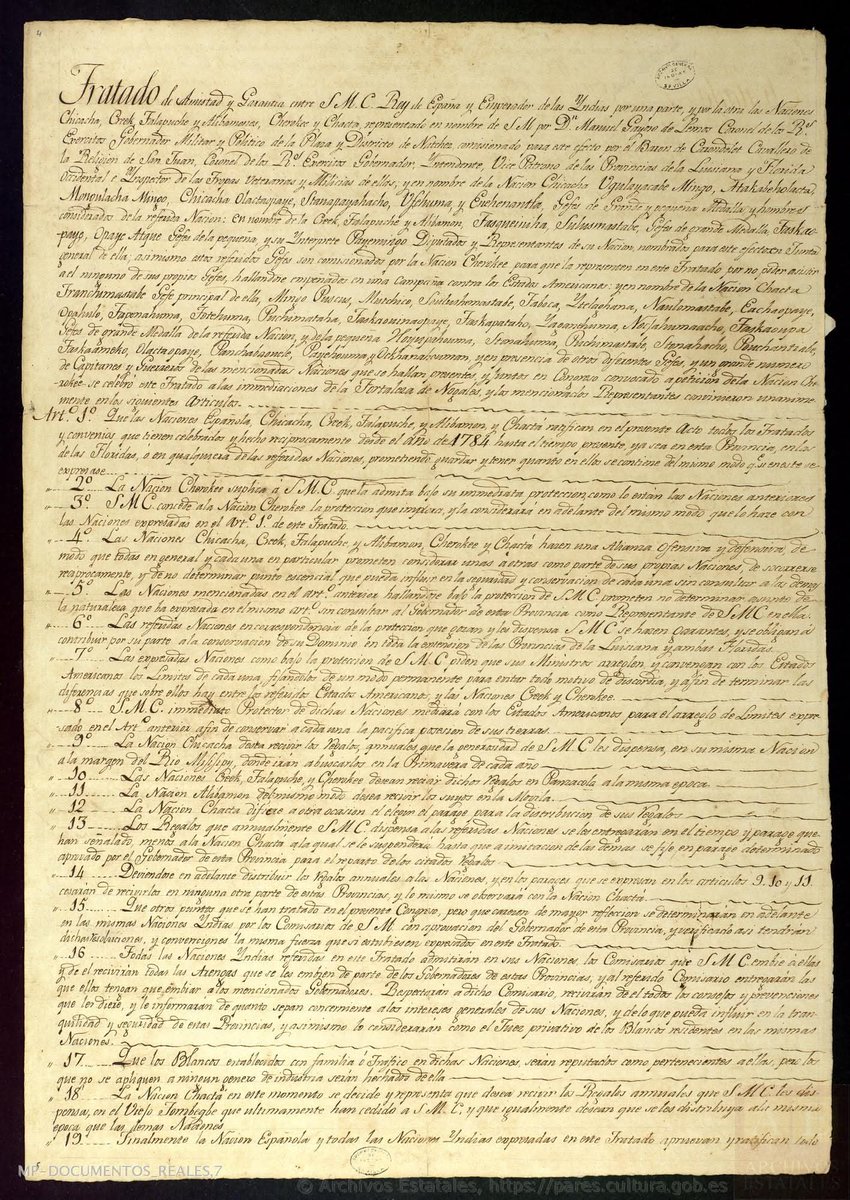 4
Tratado de Amistad y Garantia entre S.M.C. Rey de España y Emperador de las Yndias por una parte, y por la otra las Naciones
Chicacha, Creek, Talapuche y Alibamones, Cherokee y Chacta, representado en nombre de S M por Dn Manuel Gayoso de Lemos Coronel de los Rs
Exercitos Gobernador Militar y Politico de la Plaza y Districto de Natchez comisionado para este efecto por el Baron de Carondelet Cavallero de
la Religion de San Juan, Coronel de los Rs Exercitos Gobernador, Yntendente, Vice Patrono de las Provincias de la Luisiana y Florida
Occidental e Ynspector de las Tropas Veteranas y Milicias de ellas; y en nombre de la Nacion Chicacha Ugulayacabe Mingo, Atakabeholacta
Mingo, Chicacha Olactaopaye, Stanapayahacho, y Gefes de Grande y pequeña Medalla y hombres
considerados de la referida Nacion: en nombre de la Creek, Talapuche y Alibamon, Sulusmastabe, Gefes de grande Medalla
Opaye Gefes de la pequeña y su Ynterprete Payemingo Diputados y Representantes de su Nacion, nombrados para este efecto en Junta
general de ella; asimismo estos referidos Gefes son comisionados por la Nacion Cherokee para que la representen en este Tratado por no poder asistir
a el ninguno de sus propios Gefes, hallandose empeñados en una Campaña contra los Estados Americanos: y en nombre de la Nacion Chacta
Franchumastabe Gefe principal de ella, Mingo
Gefes de grande Medalla de la referida Nacion, y de la pequeña
y en presencia de otros diferentes Gefes, y un grande numero
de Capitanes y Guerreros de las mencionadas Naciones que se hallan presentes y juntos en Congreso convocado a peticion de la Nacion Che-
rokee se celebró este Tratado a las immediaciones de la Fortaleza de Nogales, y los mencionados Representantes convinieron unanime-
mente en los siguientes Articulos.
Arto 1o Que las Naciones Española, Chicacha, Creek, Talapuche, y Alibamon, y Chactá ratifican en el presente Acto todos los Tratados
y convenios que tienen celebrados y hecho reciprocamente desde el año de 1784 hasta el tiempo presente, ya sea en esta Provincia, en las
de las Floridas, o en qualquiera de las referidas Naciones, prometiendo guardar y tener quanto en ellos se contiene del mismo modo qe si en este se
expresase
" 2o La Nacion Cherokee suplica á S M C que la admita bajo su immediata proteccion, como lo estan las Naciones anteriores
" 3o S M C concede a la Nacion Cherokee la proteccion que implora, y la considerará en adelante del mismo modo que lo haze con
las Naciones expresadas en el Arto 1o de este Tratado
" 4o Las Naciones Chicacha, Creek, Talapuche y Alibamon, Cherokee y Chactá hacen una Alianza Ofensiva y defensiva, de
modo que todas en general y cada una en particular prometen considerar unas a otras como parte de sus propias Naciones, de socorrerse
reciprocamente, y de no determinar punto esencial que pueda influir en la seguridad y conservacion de cada una sin consultar a las demas
" 5o Las Naciones mencionadas en el arto anterior hallandose bajo la proteccion de S M C prometen no determinar asunto de
la naturaleza que ha expresada en el mismo arto sin consultar al Gobernador de esta Provincia como Representante de S M C en ella
" 6o Las referidas Naciones en correspondencia de la proteccion que gozan y les dispensa S M C se hazen Garantes, y se obligan á
contribuir por su parte a la conservacion de su Dominio en toda la extension de las Provincias de la Luisiana y ambas Floridas.
" 7o Las expresadas Naciones como bajo la proteccion de S M C piden que sus Ministros arreglen y convengan con los Estados
Americanos los Limites de cada una, fijandolos de un modo permanente para evitar todo motivo de discordia, y afin de terminar las
diferencias que sobre ellos hay entre los referidos Estados Americanos, y las Naciones Creek y Cherokee.
" 8o S.M.C. immediato Protector de dichas Naciones mediará con los Estados Americanos para el arreglo de Limites expre-
sado en el Arto anterior afin de conservar a cada una la pacifica posesion de sus tierras.
" 9o La Nacion Chicacha desea recivir los Regalos annuales que la generosidad de S M C les dispensa, en su misma Nacion
a la margen del Rio Misisipy, donde irán a buscarlos en la Primavera de cada año
" 10 Las Naciones Creek, Talapuche y Cherokee desean recivir dichos Regalos en Panzacola a la misma epoca
" 11 La Nacion Alibamon del mismo modo desea recivir los suyos en la Movila
" 12 La Nacion Chacta difiere a otra ocasion el elegir el parage para la distribucion de sus Regalos
" 13 Los Regalos que annualmente S M C dispensa a las referidas Naciones se les entregarán en el tiempo y parage que
han señalado, menos a la Nacion Chacta a la qual se le suspenderá hasta que a imitacion de las demas se fije en parage determinado
aprovado por el Gobernador de esta Provincia para el reparto de los citados Regalos
" 14 Deviendose en adelante distribuir los Regalos annuales a las Naciones, y en los parages que se expresan en los articulos 9. 10 y 11
cesarán de recivirlos en ninguna otra parte de estas Provincias, y lo mismo se observará con la Nacion Chacta
" 15 Que otros puntos que se han tratado en el presente Congreso, pero que carecen de mayor reflexion se determinarán en adelante
en las mismas Naciones Yndias por los Comisarios de S M con aprovacion del Gobernador de esta Provincia, y verificado asi tendrán
dichas resoluciones, y convenciones la misma fuerza que si estuviesen expresados en este Tratado
" 16 Todas las Naciones Yndias referidas en este Tratado admitiran en sus Naciones, los Comisarios que S M C embie á ellas
y de el recivirán todas las Arengas que se les embien de parte de los Gobernadores de estas Provincias, y al referido Comisario entregarán las
que ellos tengan que embiar a los mencionados Gobernadores. Respetarán a dicho Comisario, recivirán de el todos los consejos y prevenciones
que les diere, y le informarán de quanto sepan concerniente a los intereses generales de sus Naciones, y de lo que pueda influir en la tran-
quilidad y seguridad de estas Provincias, y asimismo le considerarán como el Juez privativo de los Blancos residentes en las mismas
Naciones.
" 17 Que los Blancos establecidos con familia ó Trafico en dichas Naciones, serán reputados como pertenecientes a ellas, pero los
que no se apliquen a ningun genero de industria serán hechados de ella
" 18 La Nacion Chacta en este momento se decide y representa que desea recivir los Regalos annuales que S M C les dis-
pensa, en el Viejo Tombecbe que ultimamente han cedido a S M C, y que igualmente desean que se les distribuya a la misma
epoca que las demas Naciones
" 19 Finalmente la Nacion Española y todas las Naciones Yndias expresadas en este Tratado aprueban y ratifican todo
MP-DOCUMENTOS_REALES,7
© Archivos Estatales, https://pares.cultura.gob.es